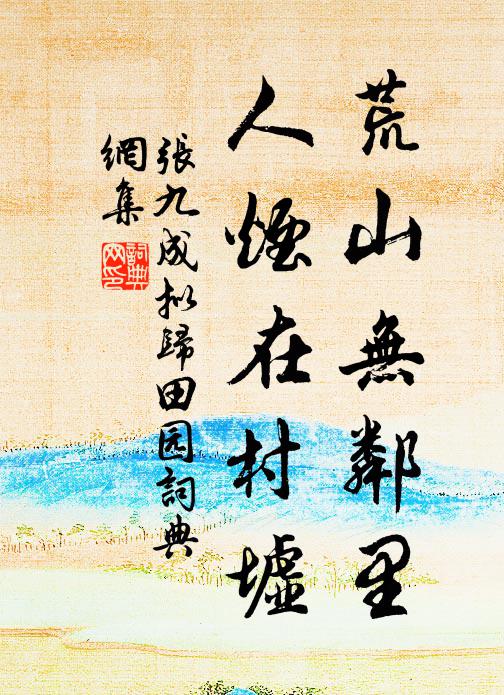 荒山無鄰里
人煙在村墟
張九成拟歸田园詞典
網集
詞典網印